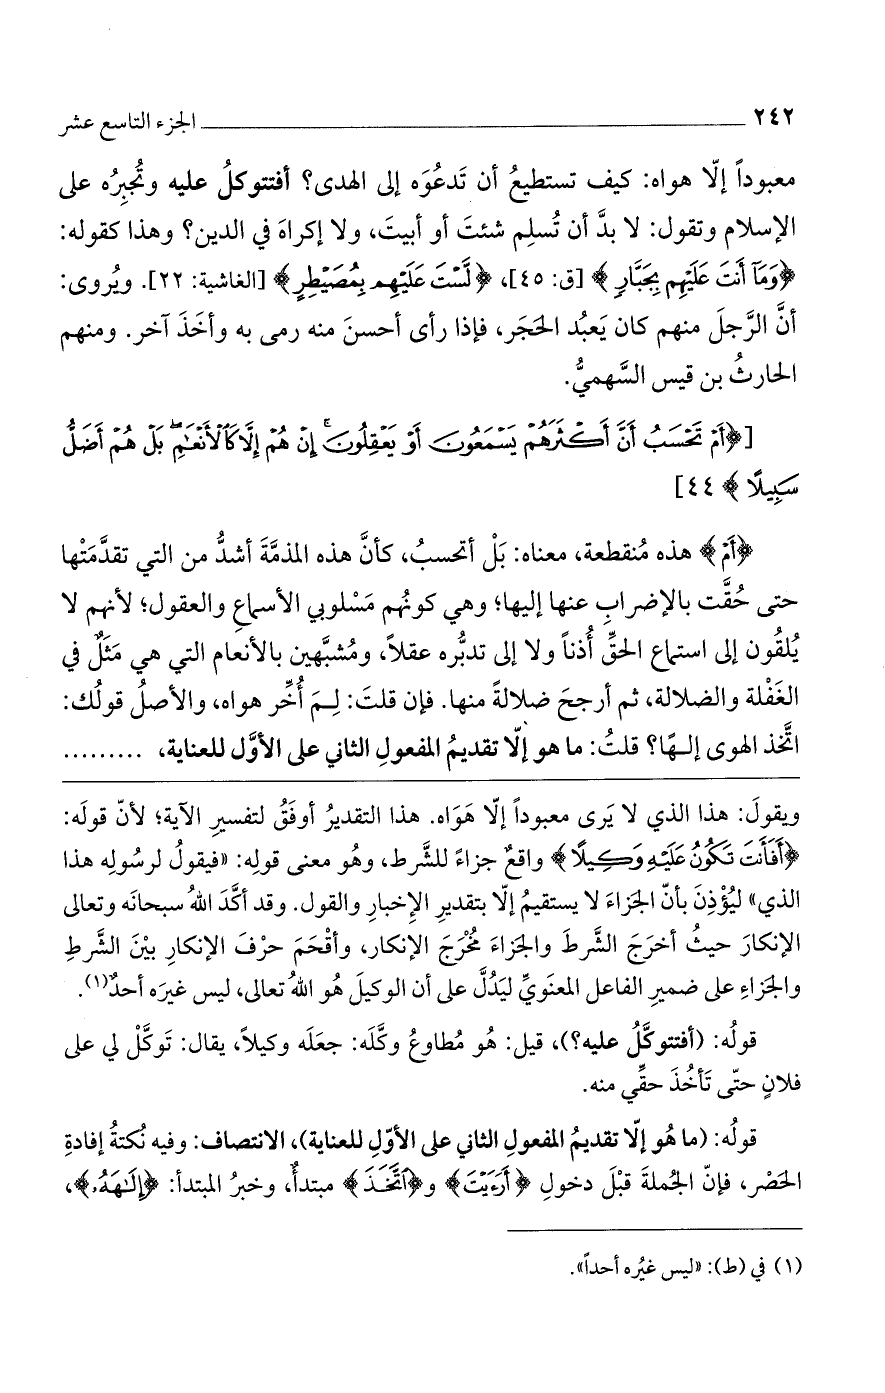 ٢٤٢ الجزء التاسع عشر
معبوداً إلّا هواه: كيف تستطيعُ أن تَدعُوَه إلى الهدى؟ أفتتوكلُ عليه وتُجبِرُه على
الإسلام وتقول: لا بدَّ أن تُسلِم شئتَ أو أبيتَ، ولا إكراهَ في الدين؟ وهذا كقوله:
﴿وَمَآ أَنتَ عَلَيْهِم بِجَبَّارٍ﴾ [ق: ٤٥]، ﴿لَّسْتَ عَلَيْهِم بِمُصَيْطِرٍ﴾ [الغاشية: ٢٢]. ويُروى:
أنَّ الرَّجلَ منهم كان يَعبُد الحَجَر، فإذا رأى أحسنَ منه رمى به وأخَذَ آخر. ومنهم
الحارثُ بن قيس السَّهميُّ.
[﴿أَمْ تَحْسَبُ أَنَّ أَكْثَرَهُمْ يَسْمَعُونَ أَوْ يَعْقِلُونَ ۚ إِنْ هُمْ إِلَّا كَالْأَنْعَٰمِ ۖ بَلْ هُمْ أَضَلُّ
سَبِيلًا﴾ ٤٤]
﴿أَمْ﴾ هذه مُنقطعة، معناه: بَلْ أتحسبُ، كأنَّ هذه المذمَّةَ أشدُّ من التي تقدَّمَتْها
حتى حُقَّت بالإضرابِ عنها إليها؛ وهي كونُهم مَسْلوبي الأسماعِ والعقول؛ لأنهم لا
يُلقُون إلى استماع الحقِّ أُذناً ولا إلى تدبُّره عقلاً، ومُشبَّهين بالأنعام التي هي مَثَلٌ في
الغَفْلة والضلالة، ثم أرجحَ ضلالةً منها. فإن قلتَ: لِـمَ أُخِّر هواه، والأصلُ قولُك:
اتَّخذ الهوى إلـهًا؟ قلتُ: ما هو إلّا تقديمُ المفعولِ الثاني على الأوَّل للعناية، .........
ويقولَ: هذا الذي لا يَرى معبوداً إلّا هَوَاه. هذا التقديرُ أوفَقُ لتفسيرِ الآية؛ لأنّ قولَه:
﴿أَفَأَنتَ تَكُونُ عَلَيْهِ وَكِيلًا﴾ واقعٌ جزاءً للشَّرط، وهُو معنى قولِه: «فيقولُ لرسُولِه هذا
الذي» ليُؤْذِنَ بأنّ الجَزاءَ لا يستقيمُ إلّا بتقديرِ الإخبارِ والقول. وقد أكَّدَ اللهُ سبحانَه وتعالى
الإنكارَ حيثُ أخرَجَ الشَّرطَ والجزاءَ مُخْرَجَ الإنكار، وأقْحَمَ حرْفَ الإنكارِ بيْنَ الشَّرطِ
والجَزاءِ على ضميرِ الفاعل المعنَويِّ ليَدُلَّ على أن الوكيلَ هُو اللهُ تعالى، ليس غيرَه أحدٌ(١).
قولُه: (أفتتوكَّلُ عليه؟)، قيل: هُو مُطاوعُ وكَّلَه: جعَلَه وكيلاً، يقال: تَوكَّلْ لي على
فلانٍ حتّى تَأخُذَ حقِّي منه.
قولُه: (ما هُو إلّا تقديمُ المفعولِ الثاني على الأوّلِ للعناية)، الانتصاف: وفيه نُكتةُ إفادةِ
الحَصْر، فإنّ الجُملةَ قبْلَ دخولِ ﴿أَرَءَيْتَ﴾ و﴿اتَّخَذَ﴾ مبتدأٌ، وخبرُ المبتدأ: ﴿إِلَـٰهَهُۥ﴾،
(١) في (ط): «ليس غيرُه أحداً».